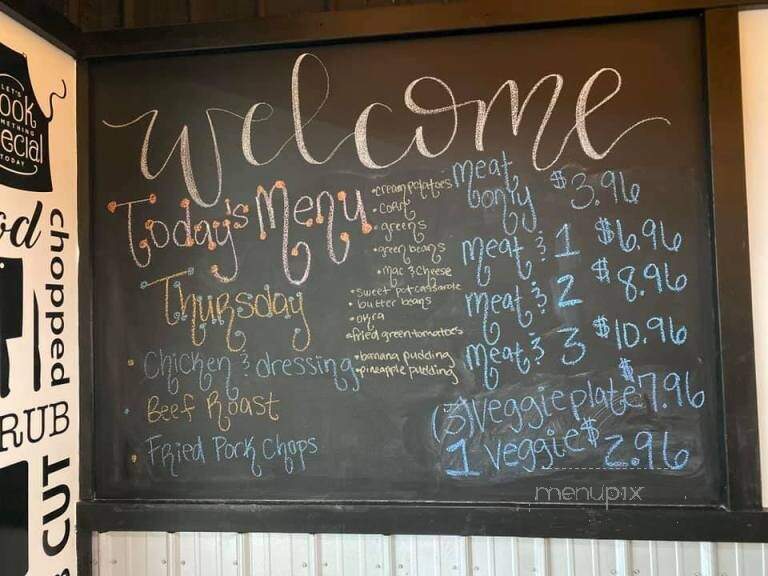 welcome
Today's Menu
Thursday
• Chicken & dressing
• Beef Roast
• Fried Pork Chops
• cream potatoes
• corn
• greens
• green beans
• mac & cheese
• sweet pot casserole
• butter beans
• okra
• fried green tomatoes
• banana pudding
• pineapple pudding
meat only $3.96
meat & 1 $6.96
meat & 2 $8.96
meat & 3 $10.96
(3) veggie plate $7.96
1 veggie $2.96
menupix
LET'S
TODAY
chopped
RUB
CUT